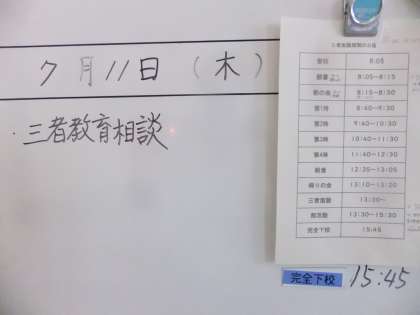 7月11日（木）
・三者教育相談
登校 8:05
8:05~8:15
朝の会 8:15~8:30
第1時 8:40~9:30
第2時 9:40~10:30
第3時 10:40~11:30
第4時 11:40~12:30
給食 12:35~13:05
帰りの会 13:10~13:20
三者面談 13:30~
部活動 13:30~15:30
完全下校 15:45
完全下校 15:45